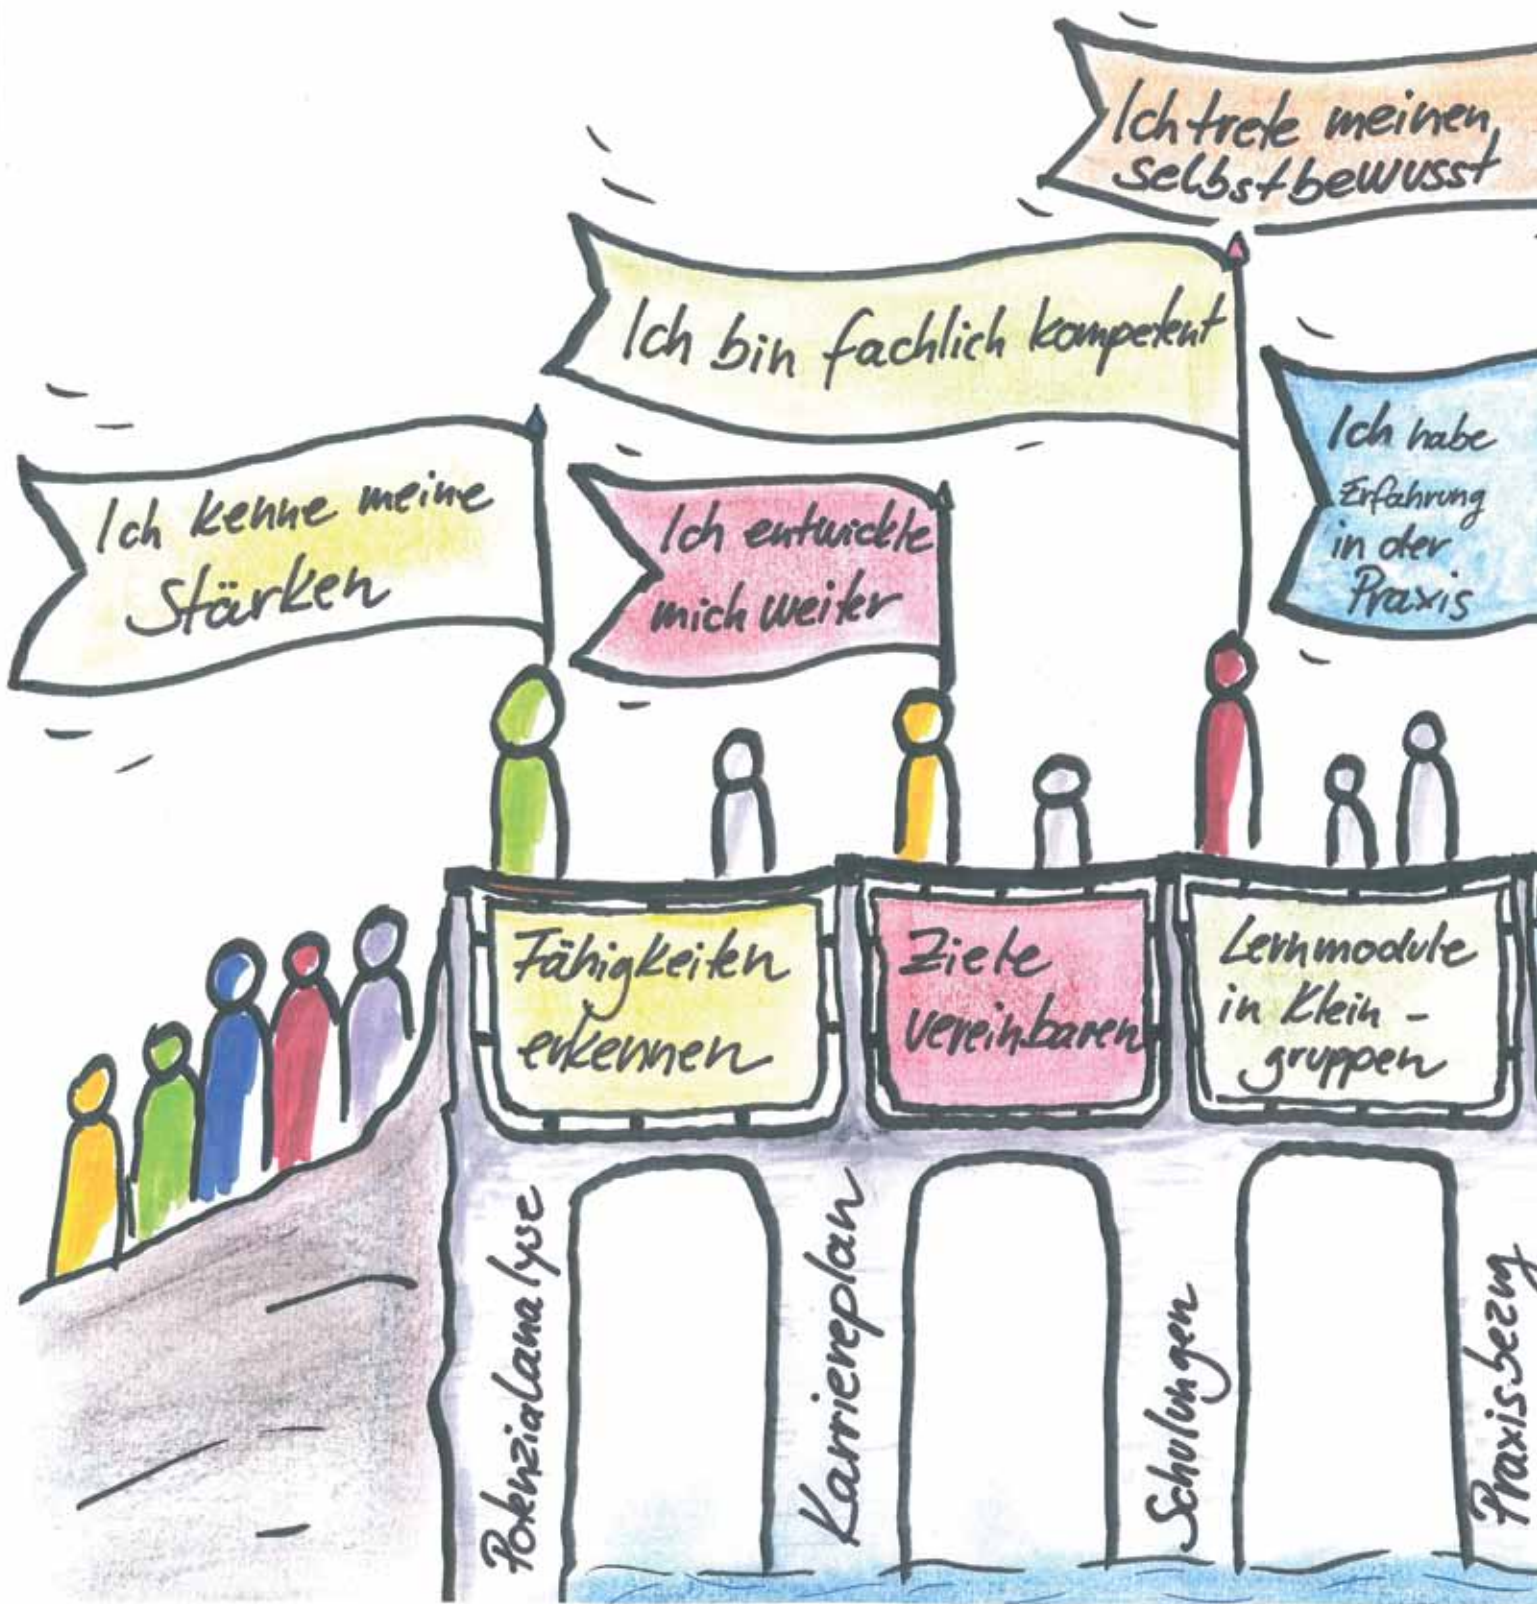 Ich trete meinen
selbstbewusst
Ich bin fachlich kompetent
Ich habe
Erfahrung
in der
Praxis
Ich kenne meine
Stärken
Ich entwickle
mich weiter
Fähigkeiten
erkennen
Ziele
vereinbaren
Lernmodule
in Klein -
gruppen
Potenzialanalyse
Karriereplan
Schulungen
Praxisbezug